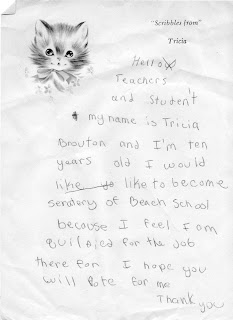 "Scribbles from"
Tricia
Hello
Teachers
and Student
my name is Tricia
Brouton and I'm ten
years old I would
like to like to become
serdery of Beach School
because I feel I am
quilfied for the job
there for I hope you
will Vote for me
Thank you